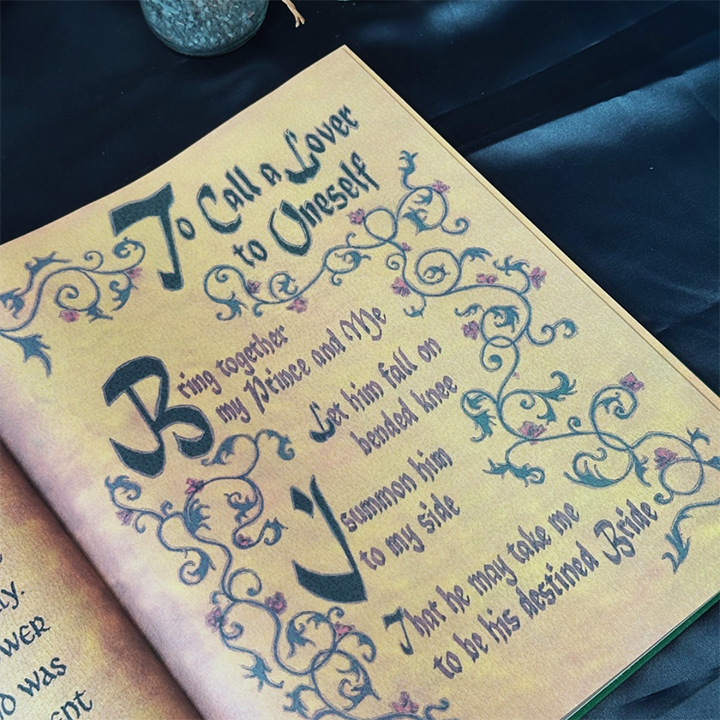 To Call a Lover
to Oneself
Bring together
my Prince and Me
Let him fall on
bended knee
I summon him
to my side
That he may take me
to be his destined Bride
was